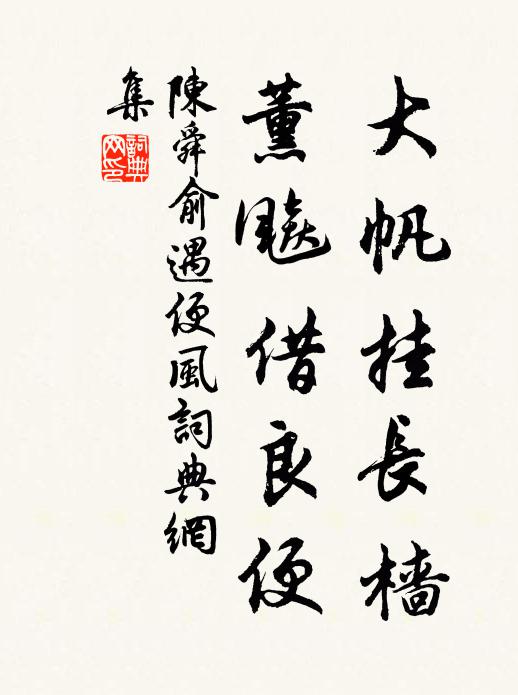 大帆挂長檣
薰飈借良便
陳舜俞遇便風詞典網
集
詞典
网印